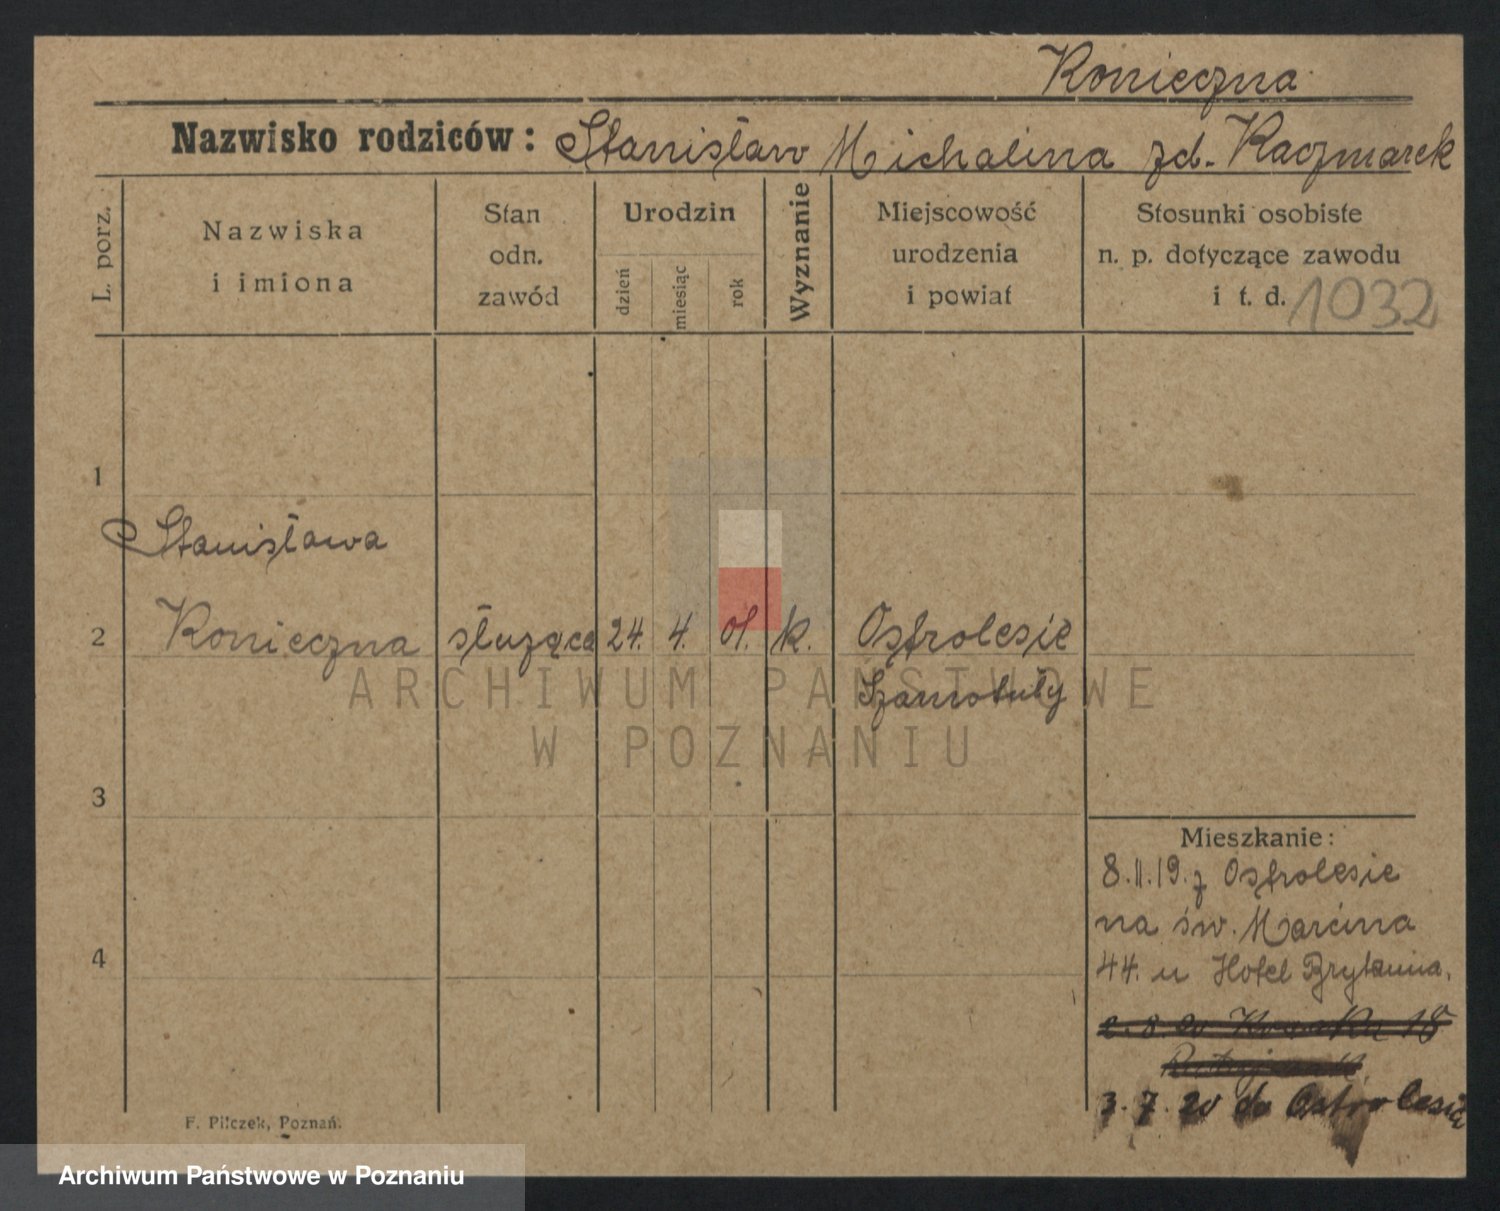 Konieczna
Nazwisko rodziców: Stanisław Michalina zd. Kaczmarek
L. porz.
Nazwiska
i imiona
Stan
odn.
zawód
Urodzin
dzień
miesiąc
rok
Wyznanie
Miejscowość
urodzenia
i powiat
Stosunki osobiste
n. p. dotyczące zawodu
i t. d. 1032
1
Stanisława
2 Konieczna służąca 24. 4. 01. k. Ostrolesie
Szamotuły
ARCHIWUM PAŃSTWOWE
W POZNANIU
3
Mieszkanie:
8.11.19. z Ostrolesie
na św. Marcina
4
44. u Hotel Brytania.
18
3. 7. 20 do Ostrolesia
F. Pilczek, Poznań.
Archiwum Państwowe w Poznaniu